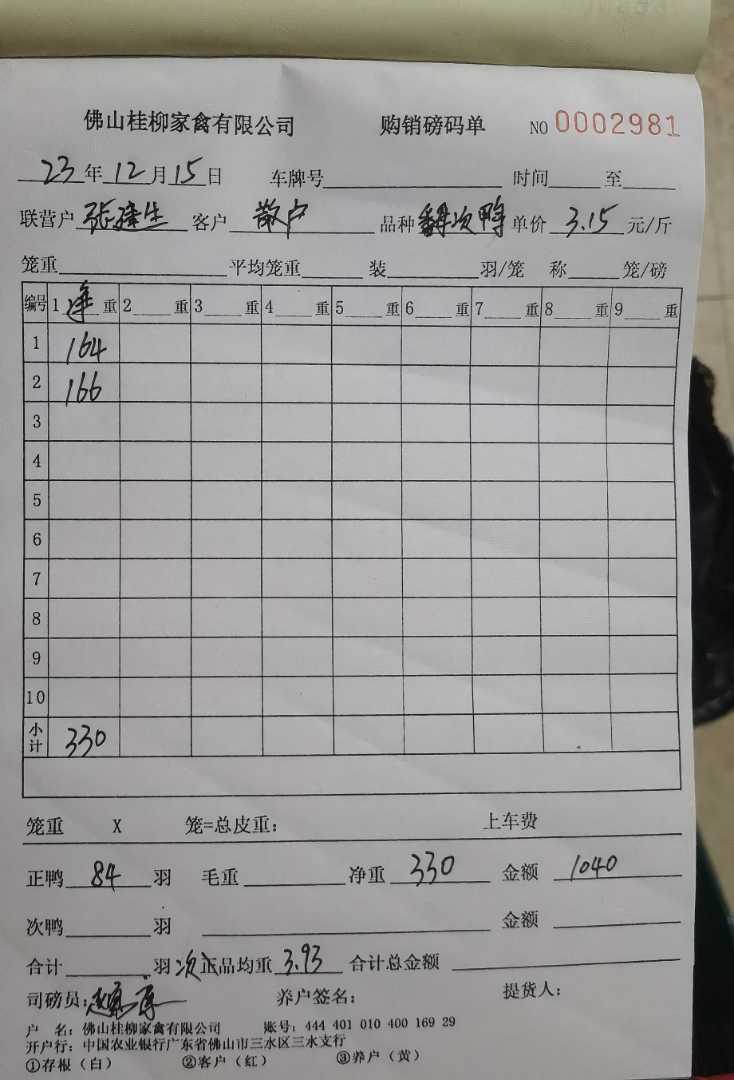 佛山桂柳家禽有限公司 购销磅码单 NO 0002981
23年12月15日 车牌号 时间 至
联营户 张建生 客户 散户 品种 次鸭 单价 3.15 元/斤
笼重 平均笼重 装 羽/笼 称 笼/磅
编号 1 重 2 重 3 重 4 重 5 重 6 重 7 重 8 重 9 重
1 164
2 166
3
4
5
6
7
8
9
10
小计 330
笼重 X 笼=总皮重: 上车费
正鸭 84 羽 毛重 净重 330 金额 1040
次鸭 羽 金额
合计 羽 次正品均重 3.93 合计总金额
司磅员: 养户签名: 提货人:
户 名: 佛山桂柳家禽有限公司 账号: 444 401 010 400 169 29
开户行: 中国农业银行广东省佛山市三水区三水支行
①存根(白) ②客户(红) ③养户(黄)